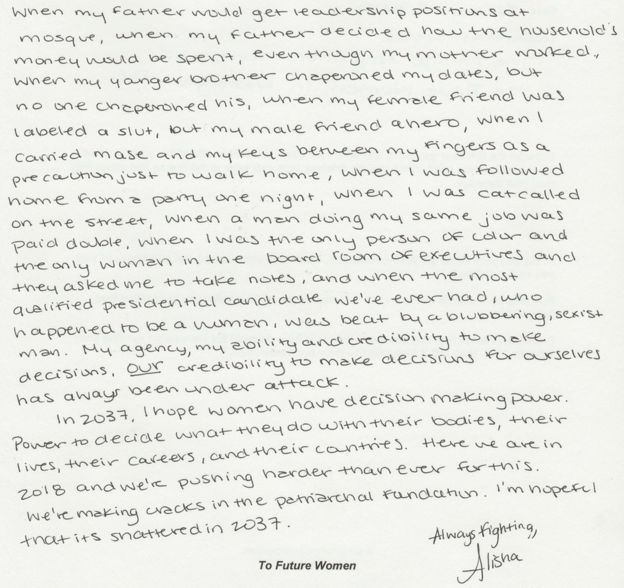 when my father would get leadership positions at
mosque, when my father decided how the household's
money would be spent, even though my mother worked,
when my yanger brother chaperoned my dates, but
no one chaperoned his, when my female friend was
labeled a slut, but my male friend a hero, when I
carried mase and my keys between my fingers as a
precaution just to walk home, when I was followed
home from a party one night, when I was catcalled
on the street, when a man doing my same job was
paid double, when I was the only person of color and
the only woman in the board room of executives and
they asked me to take notes, and when the most
qualified presidential candidate we've ever had, who
happened to be a woman, was beat by a blubbering, sexist
man. My agency, my ability and credibility to make
decisions, our credibility to make decisions for ourselves
has always been under attack.
In 2037, I hope women have decision making power.
Power to decide what they do with their bodies, their
lives, their careers, and their countries. Here we are in
2018 and we're pushing harder than ever for this.
We're making cracks in the patriarchal foundation. I'm hopeful
that its shattered in 2037.
Always fighting,
Alisha
To Future Women